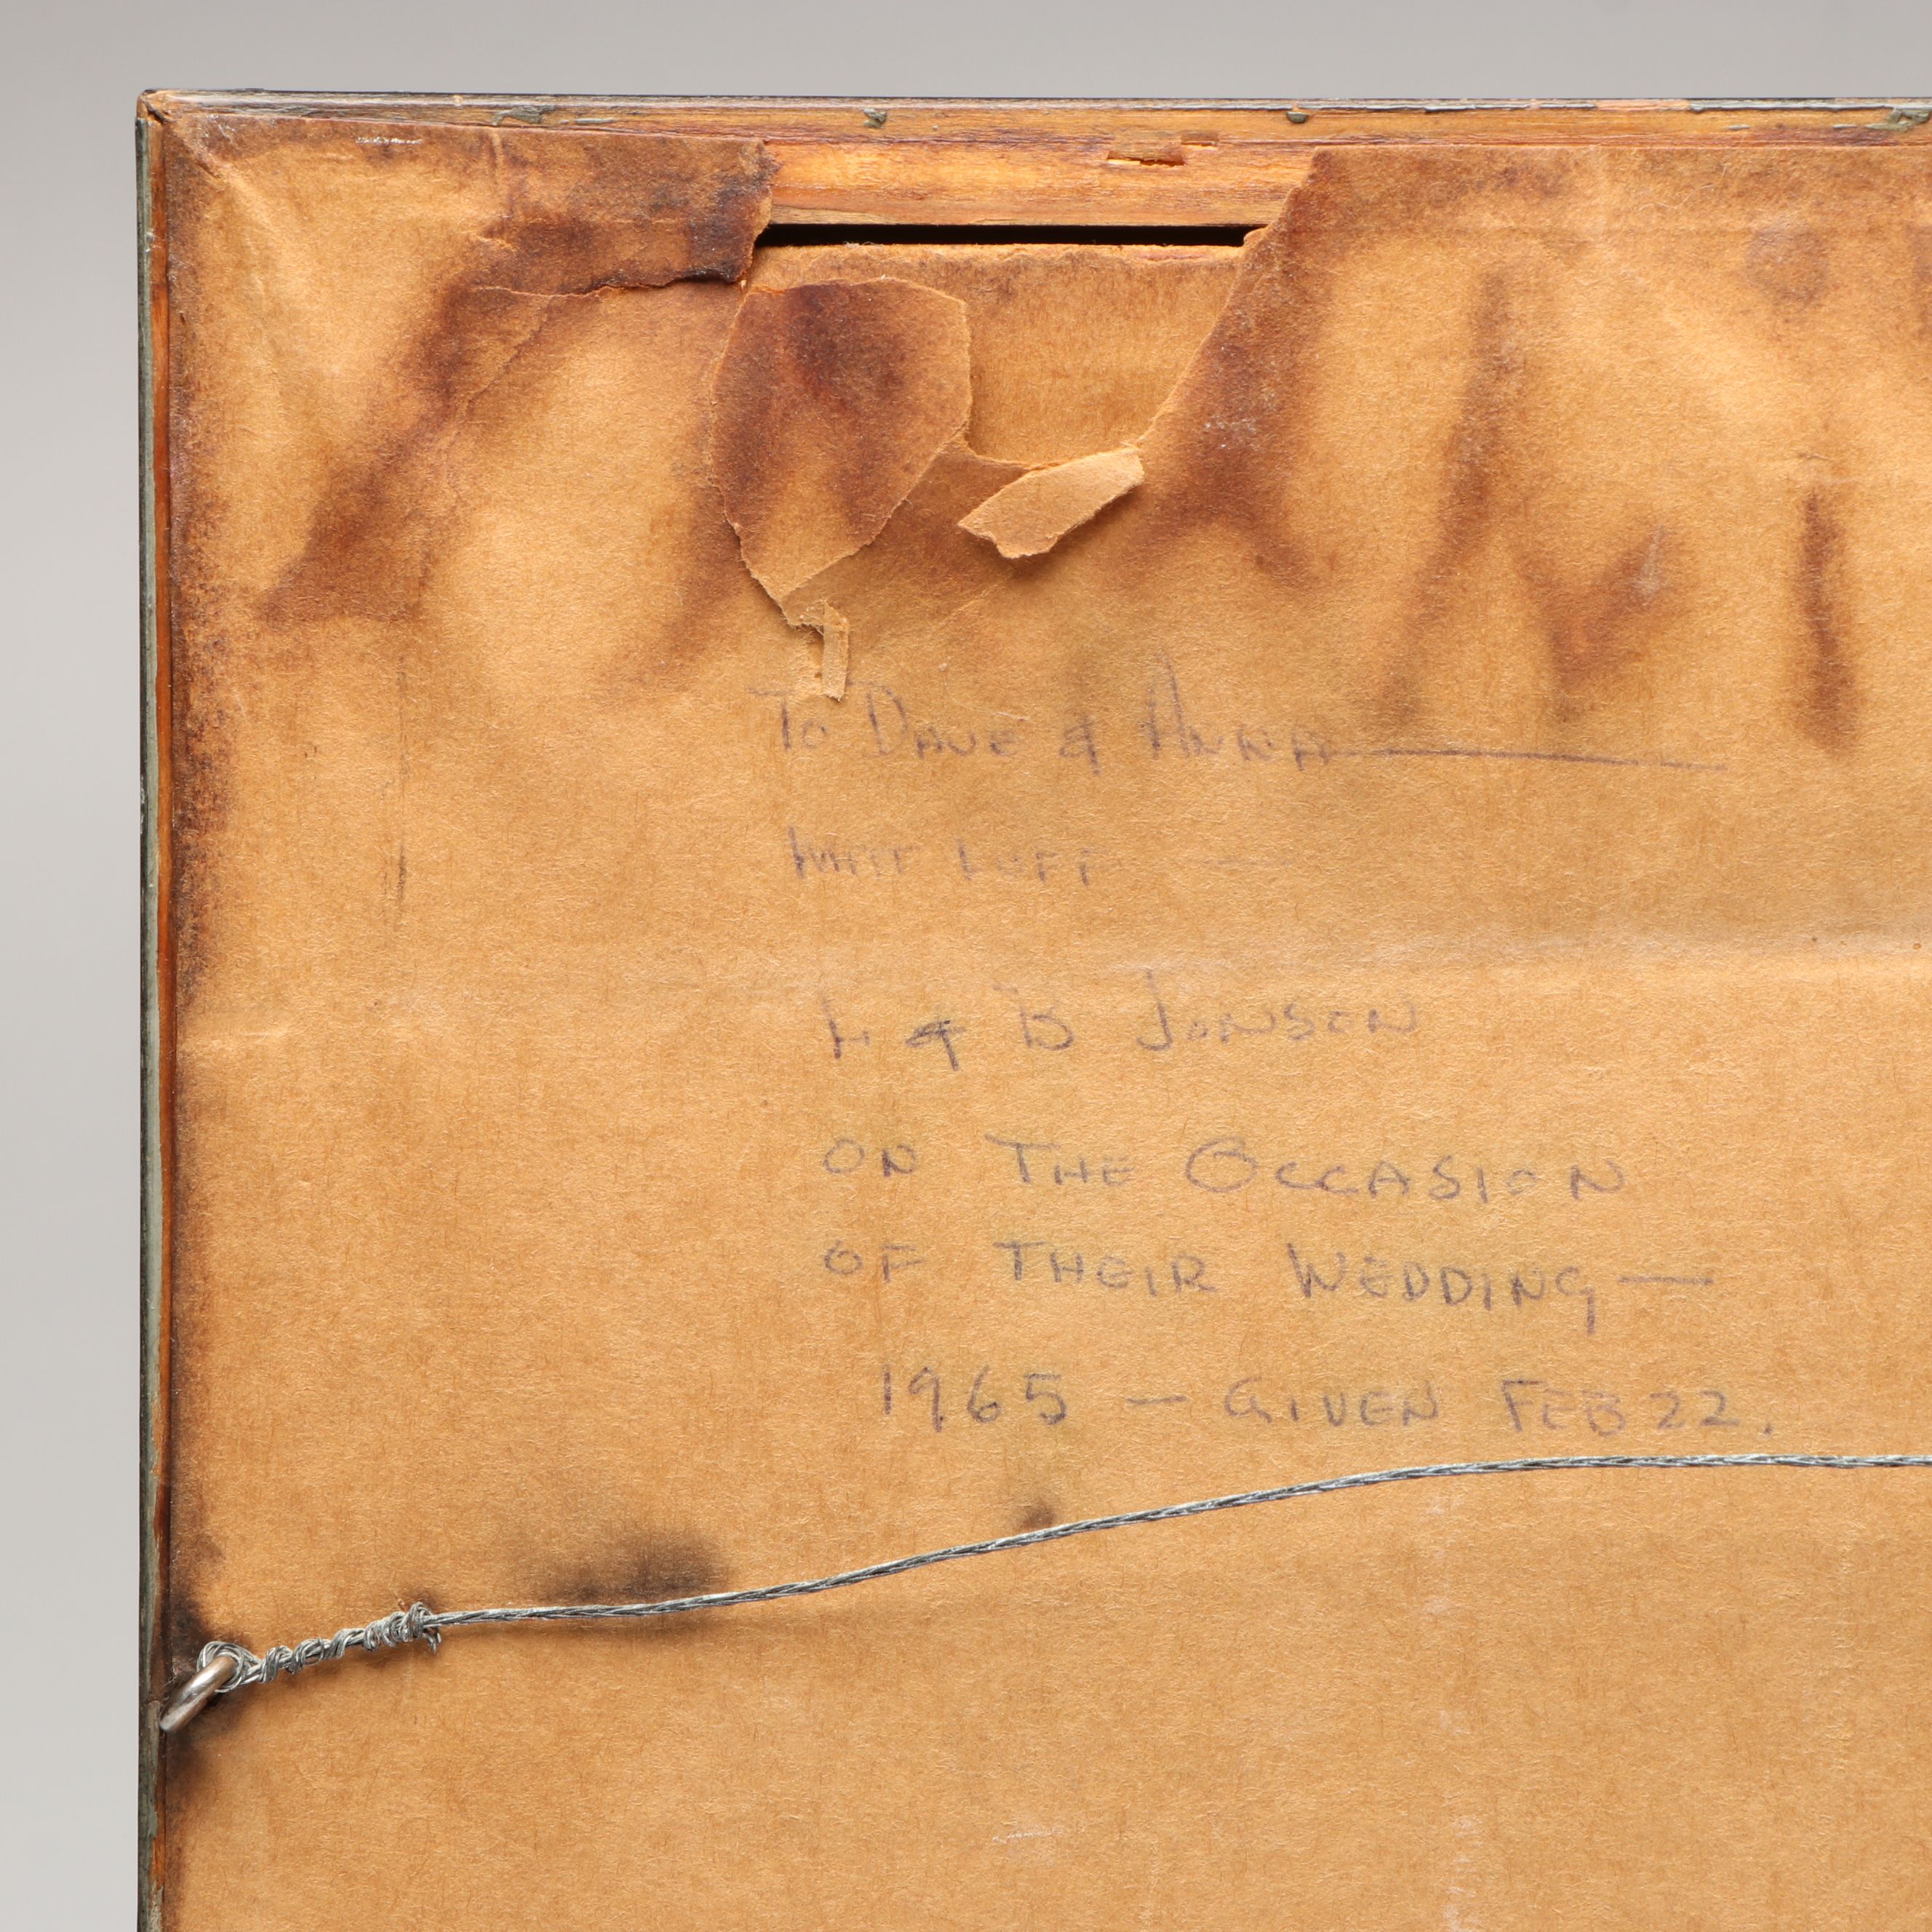 To DAVE & ANNA
& B JONSON
ON THE OCCASION
OF THEIR WEDDING —
1965 — GIVEN FEB 22.